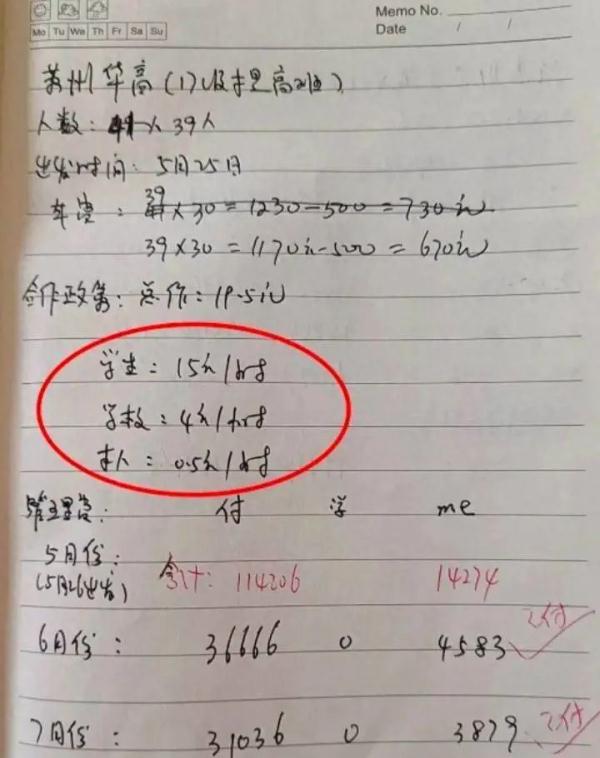 Memo No.
Mo Tu We Th Fr Sa Su
Date / /
苏州华高(17级才里高班)
人数: 39人
出发时间: 5月25日
39
车费: × 30 = 1230 - 500 = 730元
39 × 30 = 1170元 - 500 = 670元
合作政策: 总价: 19.5元
学生: 15元/时
学校: 4元/时
本人: 0.5元/时
管理费: 付 学 me
5月份:
(5月26出发) 合计: 114206 14274
6月份: 36666 0 4583 已付
7月份: 31036 0 3879 已付